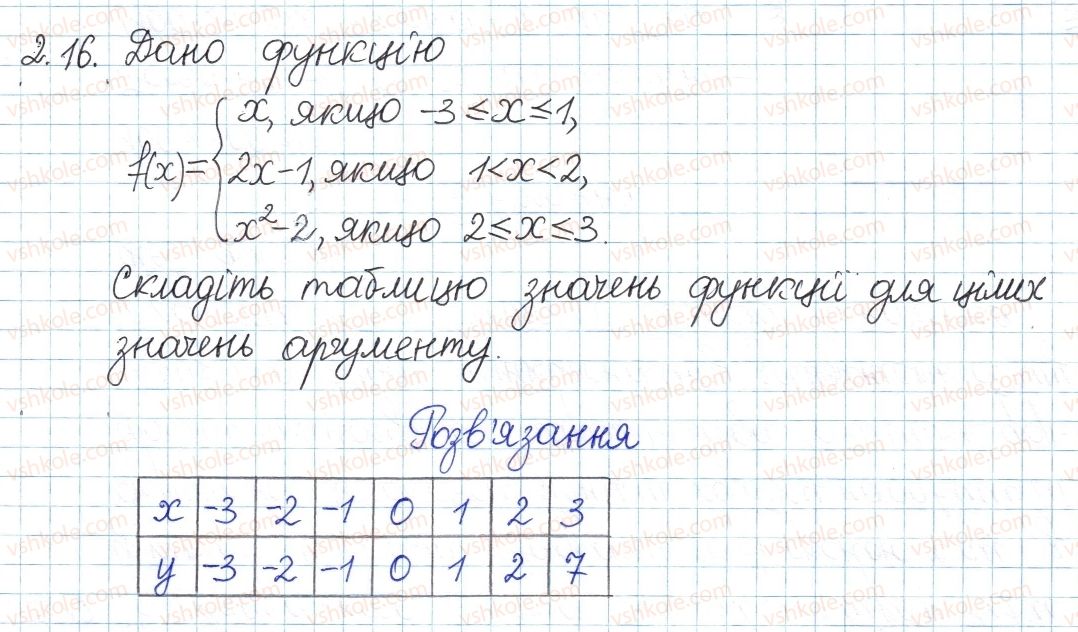 2.16. Дано функцію
f(x)= { x, якщо -3 ≤ x ≤ 1,
2x-1, якщо 1 < x < 2,
x²-2, якщо 2 ≤ x ≤ 3.
Складіть таблицю значень функції для цілих
значень аргументу.
Розв'язання
x -3 -2 -1 0 1 2 3
y -3 -2 -1 0 1 2 7
vshkole.com